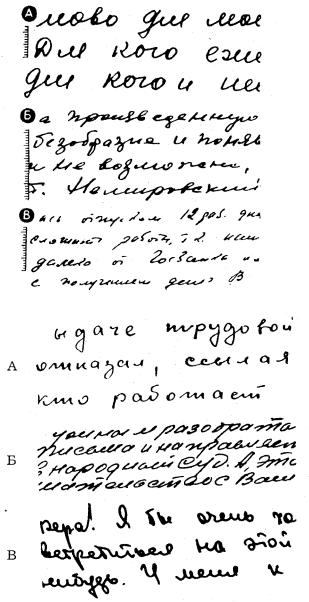 А ново для мое
Для кого еже
для кого и не
Б а произведенную
безобразие и понять
и не возможно,
г. Немировский
В ась отпуском 12 раб. дня
сложность работы, т.к. нам
далеко от Госбанка
с получением денег В
А ыдаче трудовой
отказал, ссылая
кто работает
Б разобрата
письма и направляет
народный суд. А, эти
В вера! Я бы очень хо
встретиться на этой
нибудь. У меня к